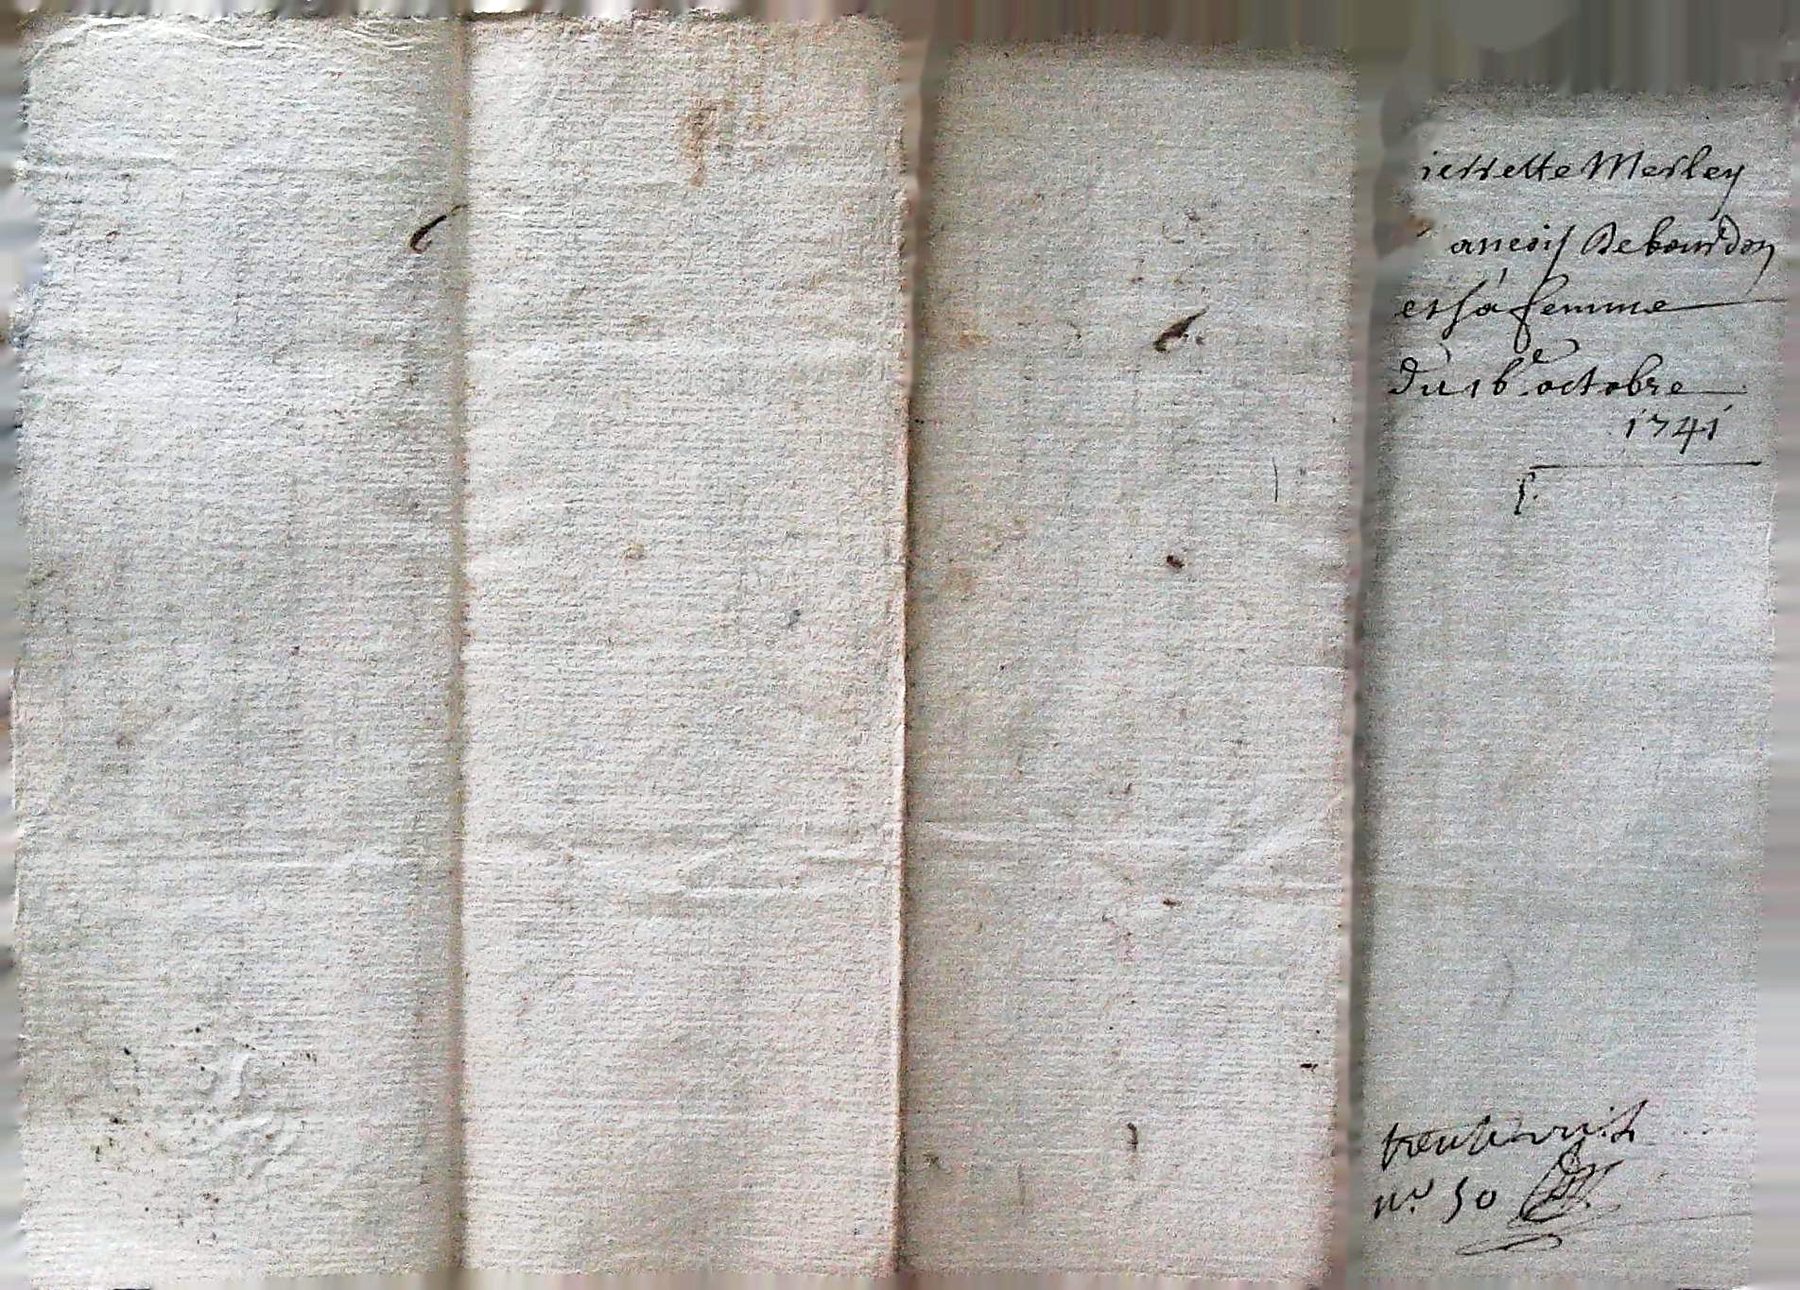 ierrette Merley
ancois Debourdon
et sa femme
du 16e octobre
1741
trente huit
no. 50